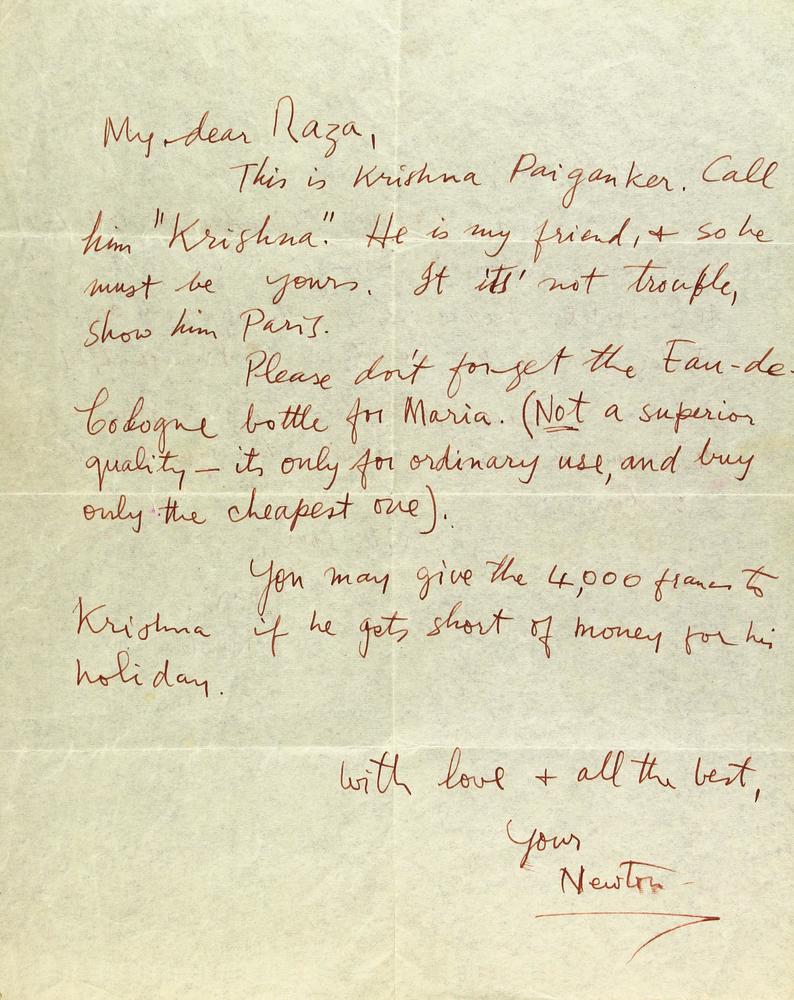 My dear Raza,
This is Krishna Paiganker. Call
him "Krishna". He is my friend, & so he
must be yours. If its' not trouble,
show him Paris.
Please don't forget the Eau-de-
Cologne bottle for Maria. (Not a superior
quality – its only for ordinary use, and buy
only the cheapest one).
You may give the 4,000 francs to
Krishna if he gets short of money for his
holiday.
With love + all the best,
Your
Newton